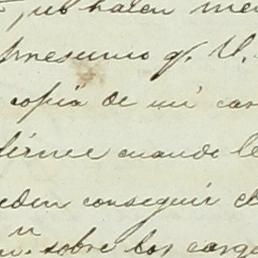 pub halen me
presumo q. V.
copia de mi car
cuando le
eden conseguir el
n. sobre los carg